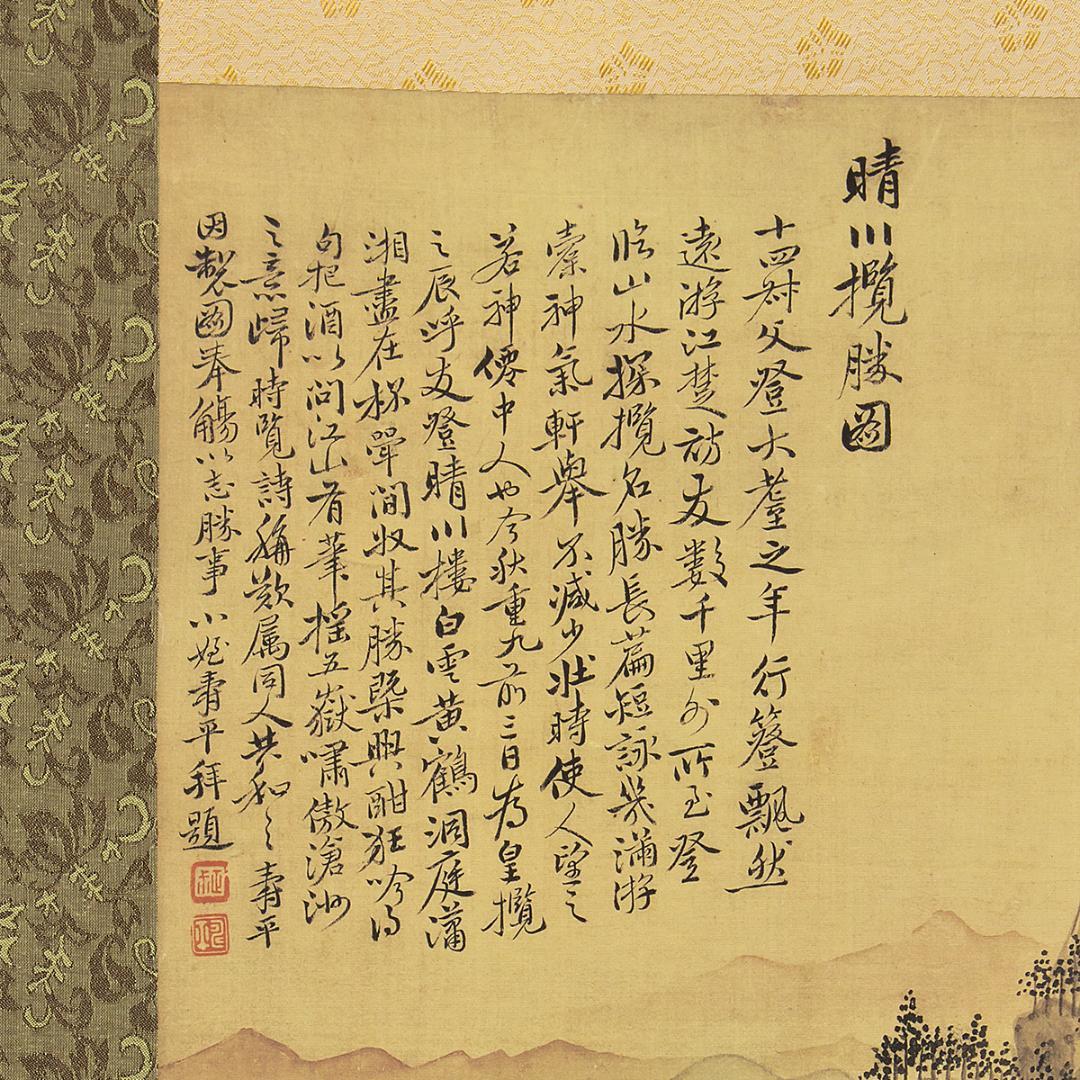 晴川攬勝圖
十四叔父登大耋之年行簦飄然
遠游江楚訪友數千里外所至登
臨山水探攬名勝長篇短詠幾滿游
橐神氣軒舉不減少壯時使人望之
若神僊中人也今秋重九前三日為皇攬
之辰呼友登晴川樓白雲黃鶴洞庭瀟
湘盡在杯斝間收其勝槩興酣狂吟得
句把酒以問江山有筆搖五嶽嘯傲滄洲
之意歸時覽詩稱歎属同人共和之壽平
因製圖奉觴以志勝事小姪壽平拜題